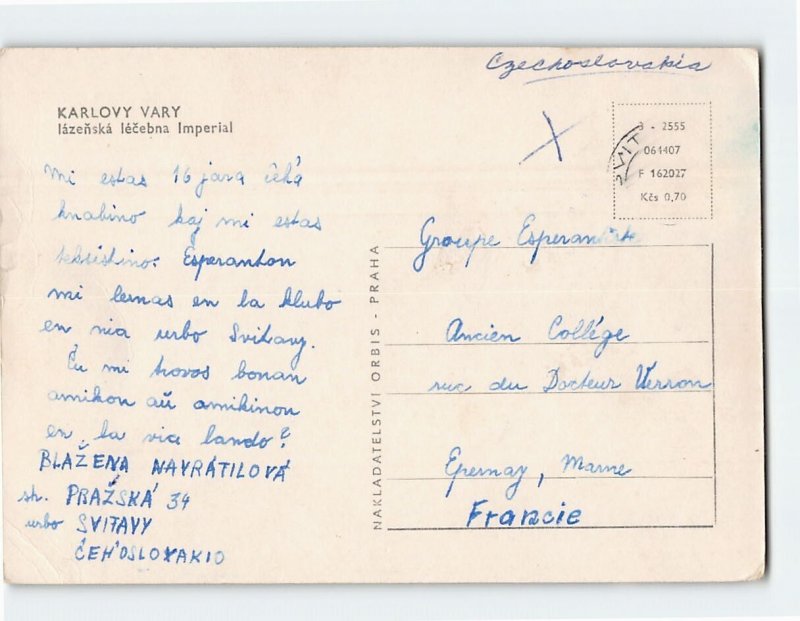 Czechoslovakia
KARLOVY VARY
lázeňská léčebna Imperial
3 - 2555
061407
F 162027
Kčs 0,70
SVIT
X
Mi estas 16 jara ĉeĥa
knabino kaj mi estas
teksistino. Esperanton
mi lernas en la klubo
en nia urbo Svitavy.
Ĉu mi trovos bonan
amikon aŭ amikinon
en la via lando?
BLAŽENA NAVRÁTILOVÁ
str. PRAŽSKÁ 34
urbo SVITAVY
ĈEĤOSLOVAKIO
NAKLADATELSTVÍ ORBIS - PRAHA
Groupe Esperantiste
Ancien Collége
rue du Docteur Verron
Epernay, Marne
Francie